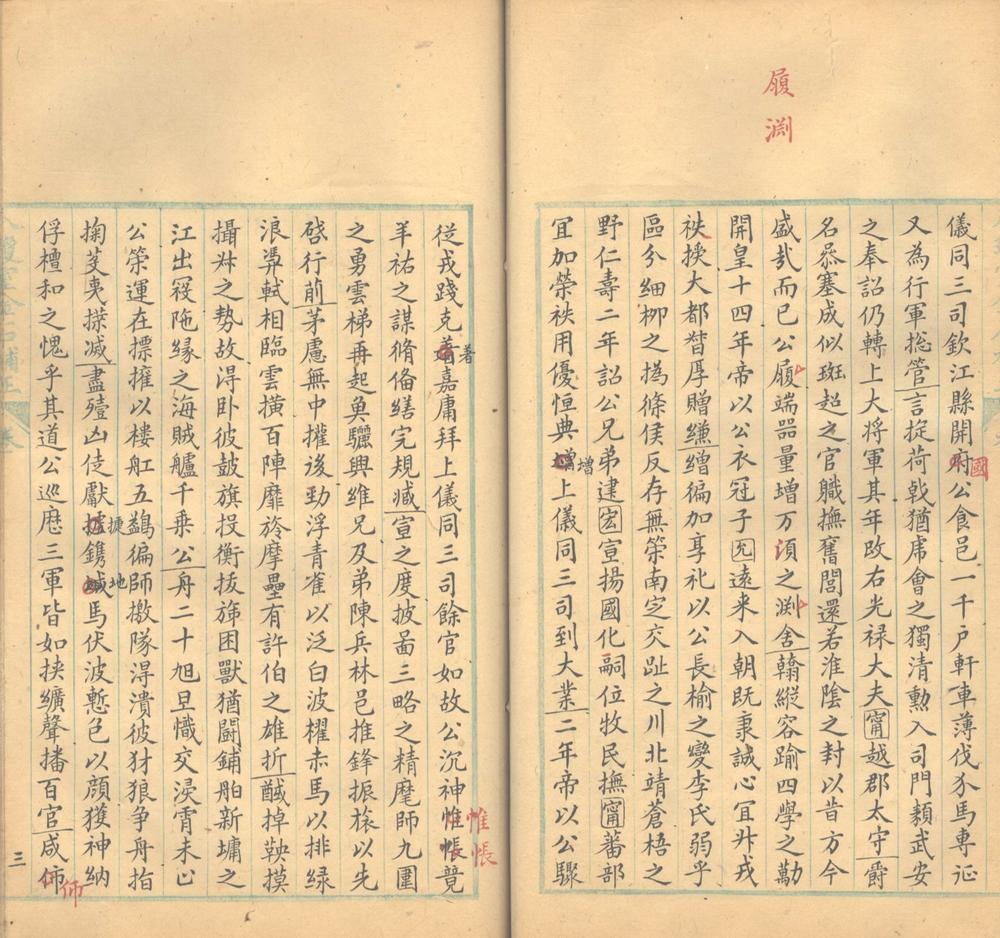 履
渊
儀同三司欽江縣開府公食邑一千戶軒車薄伐介馬專征
國
又為行軍総管言挖荷戟猶席會之獨清勲入司門類武安
之奉詔仍轉上大将軍其年改右光禄大夫甯越郡太守爵
名忝塞成似班超之官職撫奮閭還若淮陰之封以昔方今
盛㢤而已公履端器量增万湏之渊舍翰縱容踰四學之勤
開皇十四年帝以公衣冠子㐬遠来入朝既秉誠心冝升戎
秩擈大都督厚贈縑繒徧加享礼以公長榆之變李氏弱乎
區分細柳之撝條侯反存無䇿南定交趾之川北靖蒼梧之
野仁壽二年詔公兄弟建宏宣揚國化嗣位牧民撫甯蕃部
冝加榮秩用優恒典増上儀同三司到大業二年帝以公驟
增
從戎踐克著嘉庸拜上儀同三司餘官如故公沉神惟帳竟
著
惟帳
羊祐之謀脩俻繕完規減宣之度披啚三略之精麾師九圍
之勇雲梯再起奐驪興維兄及弟陳兵林邑推鋒振旅以先
啓行前茅慮無中權後勁浮青雀以泛白波櫂赤馬以排緑
浪舁軾相臨雲横百陣靡旍摩壘有許伯之雄折馘掉鞅摸
攝舛之勢故淂卧彼鼓旗投衡拔斾困獸猶鬭鋪舶新墉之
江出䆮阤縁之海賊艫千乗公舟二十旭旦幟交浸霄未止
公䇿運在摽擁以楼舡五鷁徧師擞隊淂潰彼犲狼争舟指
掬芟夷揲减盡殪凶徒獻捷鐫地馬伏波慙色以顔獲神納
捷
地
俘檀和之愧乎其道公巡厯三軍皆如挾纊聲播百官咸师
师
三